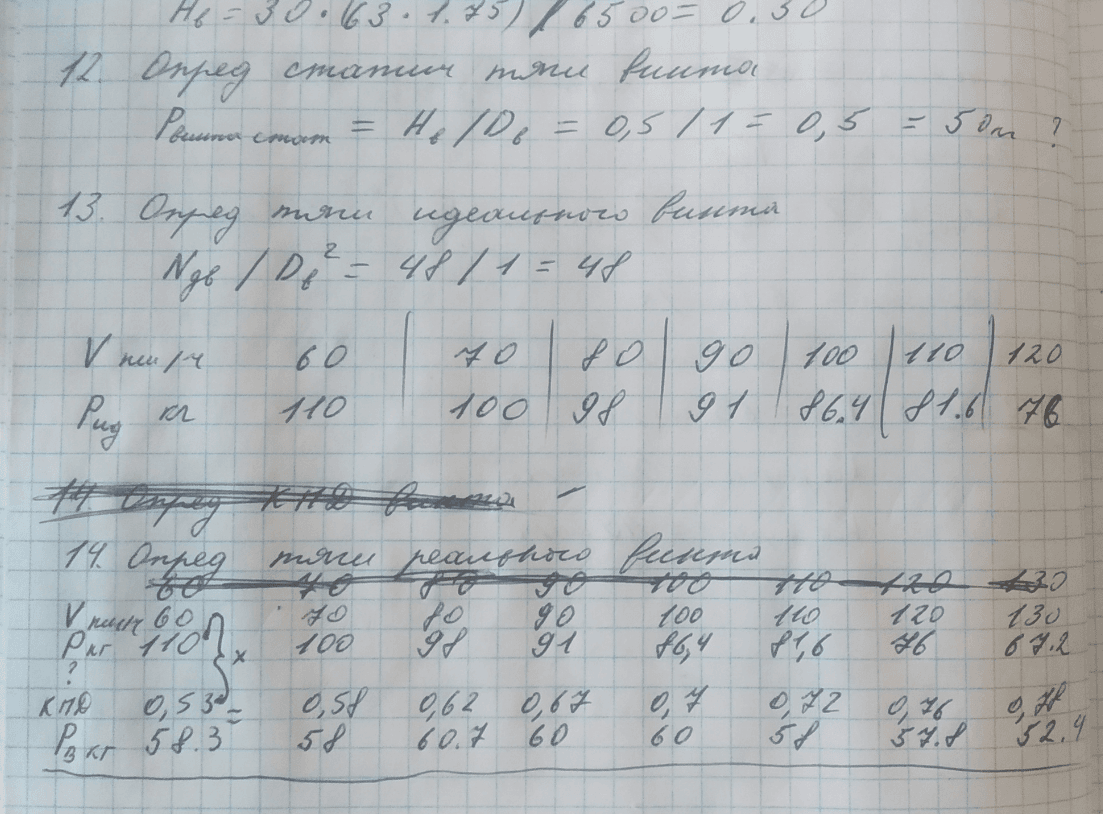 Нв = 30 · (63 · 1.75) / 6500 = 0.30
12. Опред статич тяги винта
Pвинта стат = Нв / Dв = 0,5 / 1 = 0,5 = 50 кг ?
13. Опред тяги идеального винта
Nдв / Dв² = 48 / 1 = 48
V км/ч 60 70 80 90 100 110 120
Pид кг 110 100 98 91 86.4 81.6 76
14. Опред КПД винта
14. Опред тяги реального винта
60 70 80 90 100 110 120 130
V км/ч 60 70 80 90 100 110 120 130
P кг 110 х 100 98 91 86,4 81,6 76 67.2
?
КПД 0,53 = 0,58 0,62 0,67 0,7 0,72 0,76 0,78
Pв кг 58.3 58 60.7 60 60 58 57.8 52.4